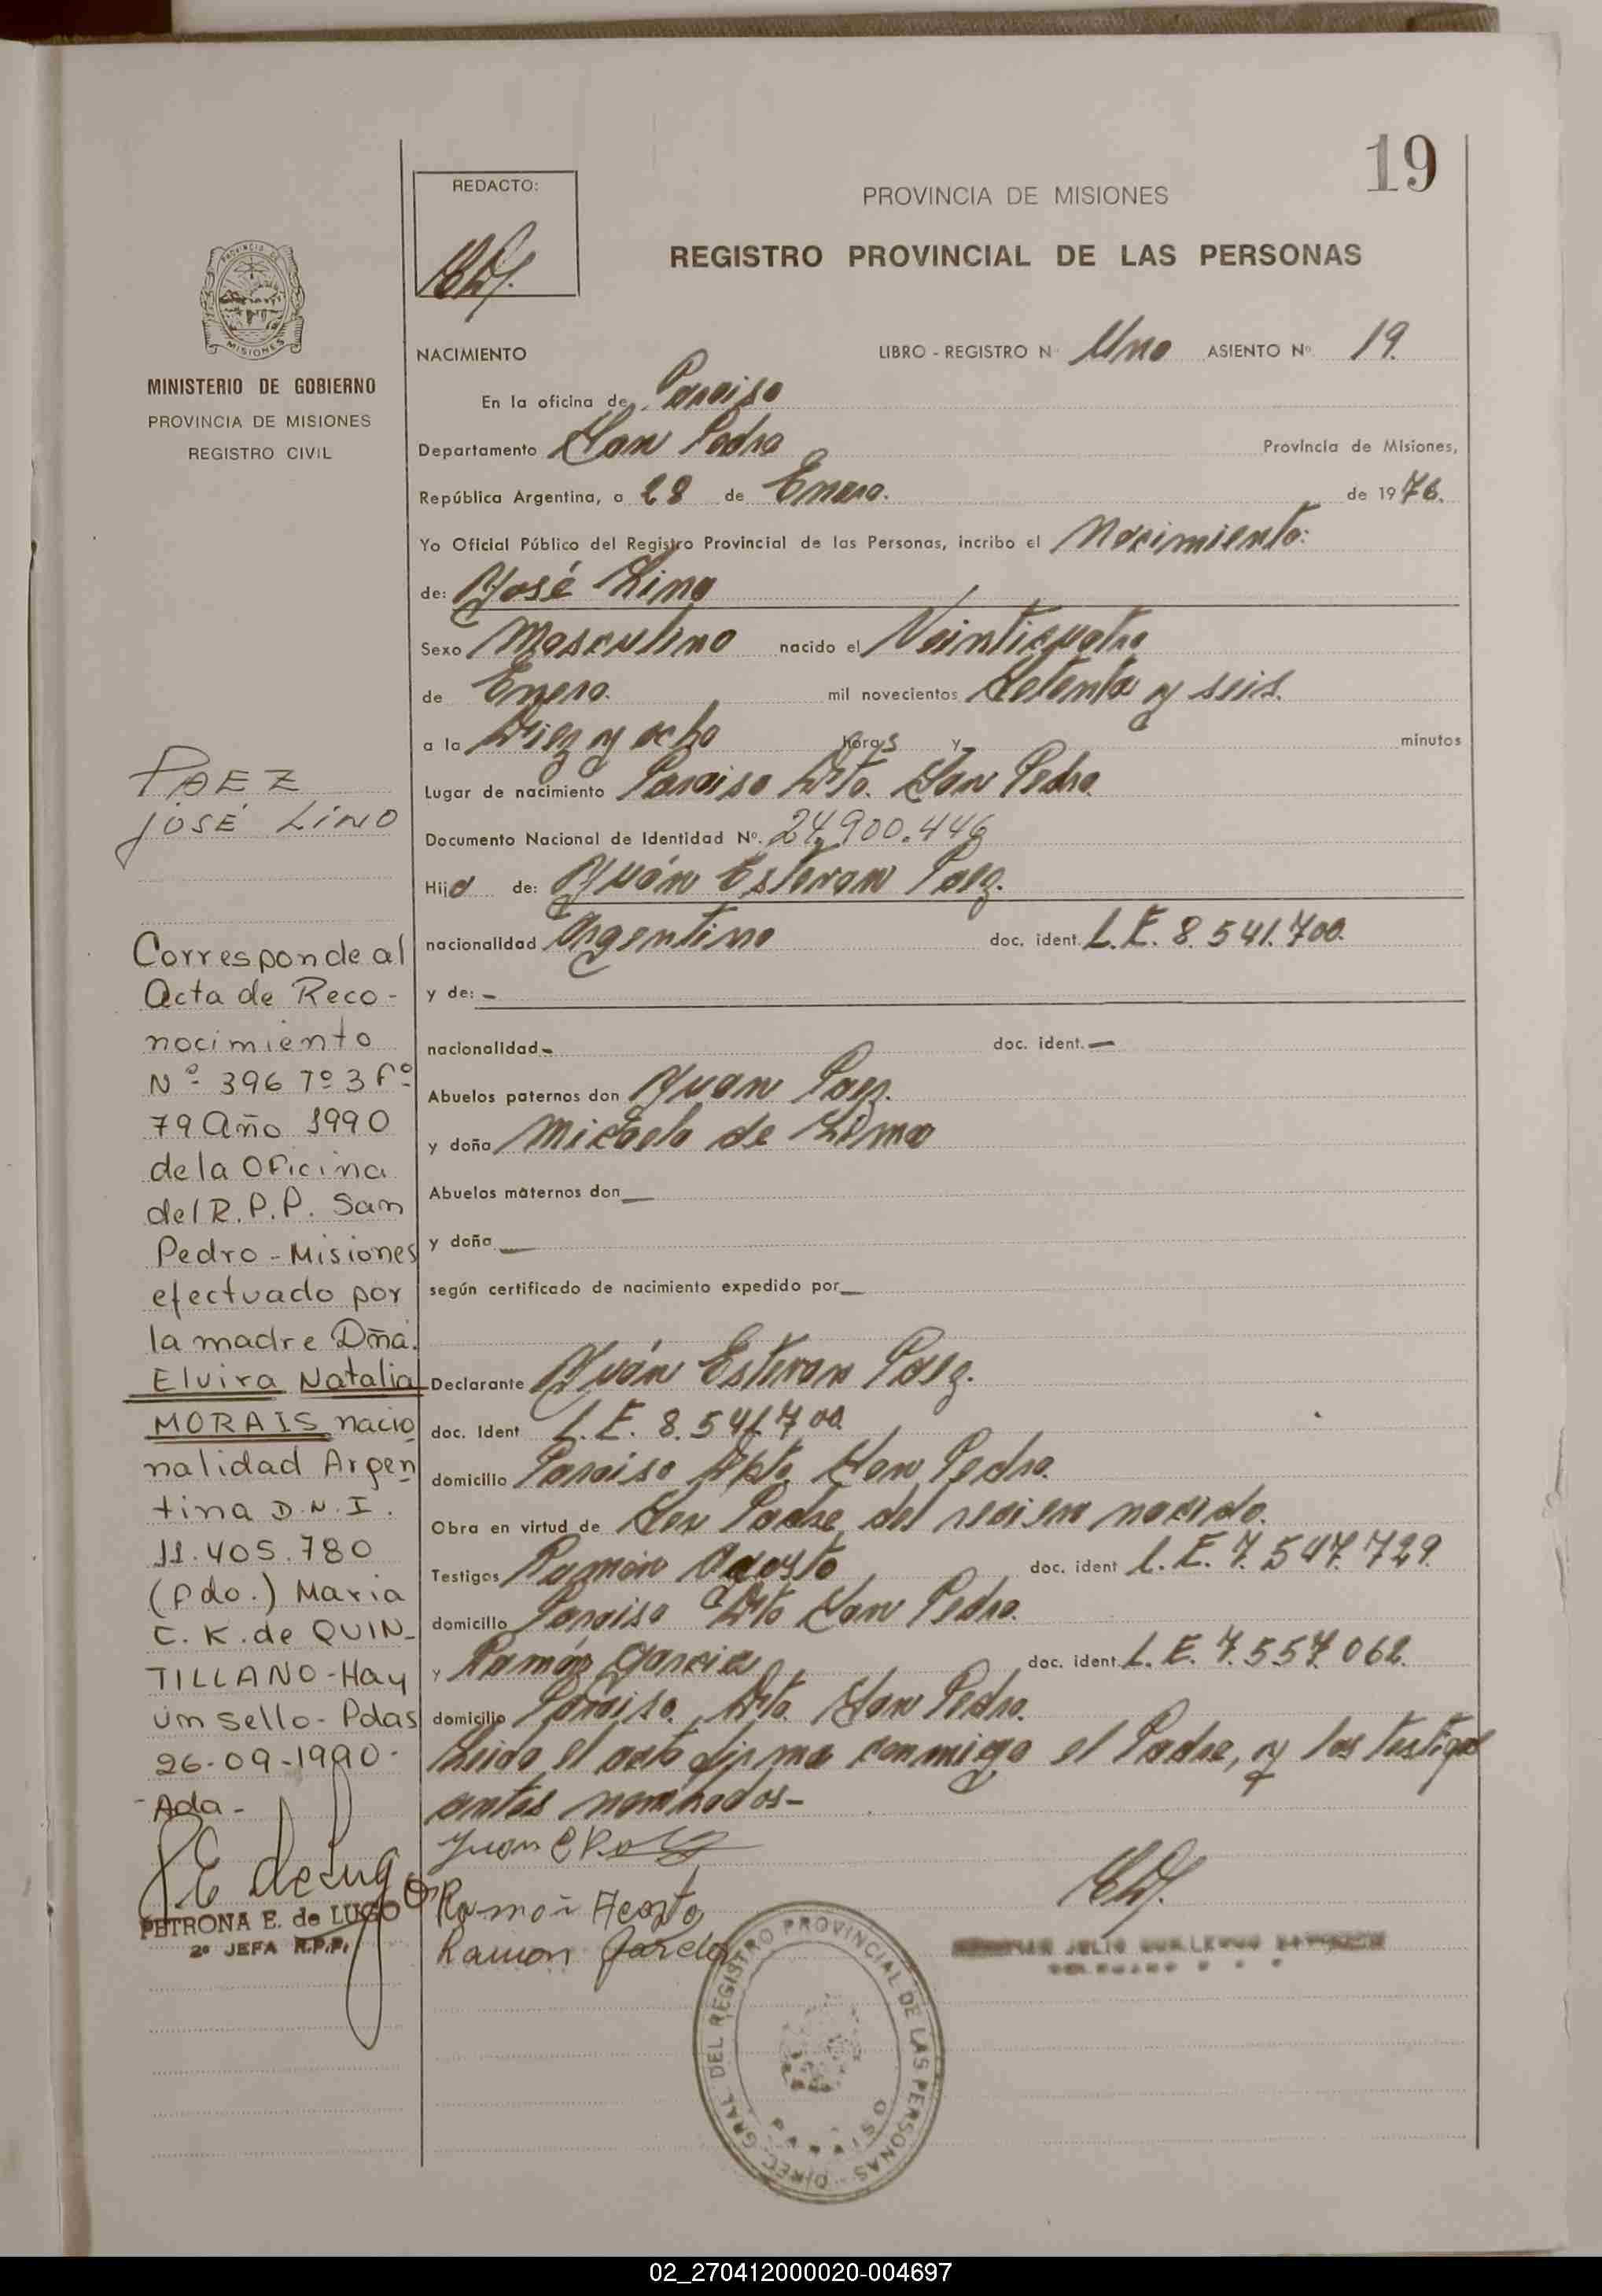 19
REDACTO:
PROVINCIA DE MISIONES
REGISTRO PROVINCIAL DE LAS PERSONAS
PROVINCIA DE
MISIONES
MINISTERIO DE GOBIERNO
PROVINCIA DE MISIONES
REGISTRO CIVIL
NACIMIENTO LIBRO - REGISTRO Nº Uno ASIENTO Nº 19.
En la oficina de Paraiso
Departamento San Pedro Provincia de Misiones,
República Argentina, a 28 de Enero. de 1976.
Yo Oficial Público del Registro Provincial de las Personas, incribo el Nacimiento:
de: José Lino
Sexo Masculino nacido el Veinticuatro
de Enero. mil novecientos Setenta y seis.
a la Diez y ocho horas y minutos
Lugar de nacimiento Paraiso Dto. San Pedro.
Documento Nacional de Identidad Nº. 24.900.446
Hijo de: Juán Estevan Paez.
nacionalidad Argentino doc. ident. L.E. 8.541.700.
y de: -
nacionalidad - doc. ident. -
Abuelos paternos don Juan Paez.
y doña Micaela de Lima
Abuelos maternos don —
y doña —
según certificado de nacimiento expedido por —
Declarante Juán Estevan Paez.
doc. Ident L.E. 8.541.700.
domicilio Paraiso Dpto. San Pedro.
Obra en virtud de Ser Padre del resien nacido.
Testigos Ramón Acosta doc. ident L.E. 7.547.729.
domicilio Paraiso Dto San Pedro.
y Ramón Garcia doc. ident. L.E. 7.557.062.
domicilio Paraiso. Dto. San Pedro.
Leida el acta firma conmigo el Padre, y los testigos
antes nombrados-
Juan E Paez
Ramón Acosta
Ramon Garcia
PAEZ
JOSÉ LINO
Corresponde al
Acta de Reco-
nocimiento
Nº 396 Tº 3 Fº
79 Año 1990
de la Oficina
del R.P.P. San
Pedro - Misiones
efectuado por
la madre Dña.
Elvira Natalia
MORAIS nacio
nalidad Argen
tina D.N.I.
11.405.780
(Fdo.) Maria
C. K. de QUIN-
TILLANO - Hay
un sello - Pdas
26-09-1990-
- Ada -
P E de Lugo
PETRONA E. de LUGO
2º JEFA R.P.P.
JULIO GUILLERMO
DIREC. GRAL. DEL REGISTRO PROVINCIAL DE LAS PERSONAS
PARAISO
02_270412000020-004697